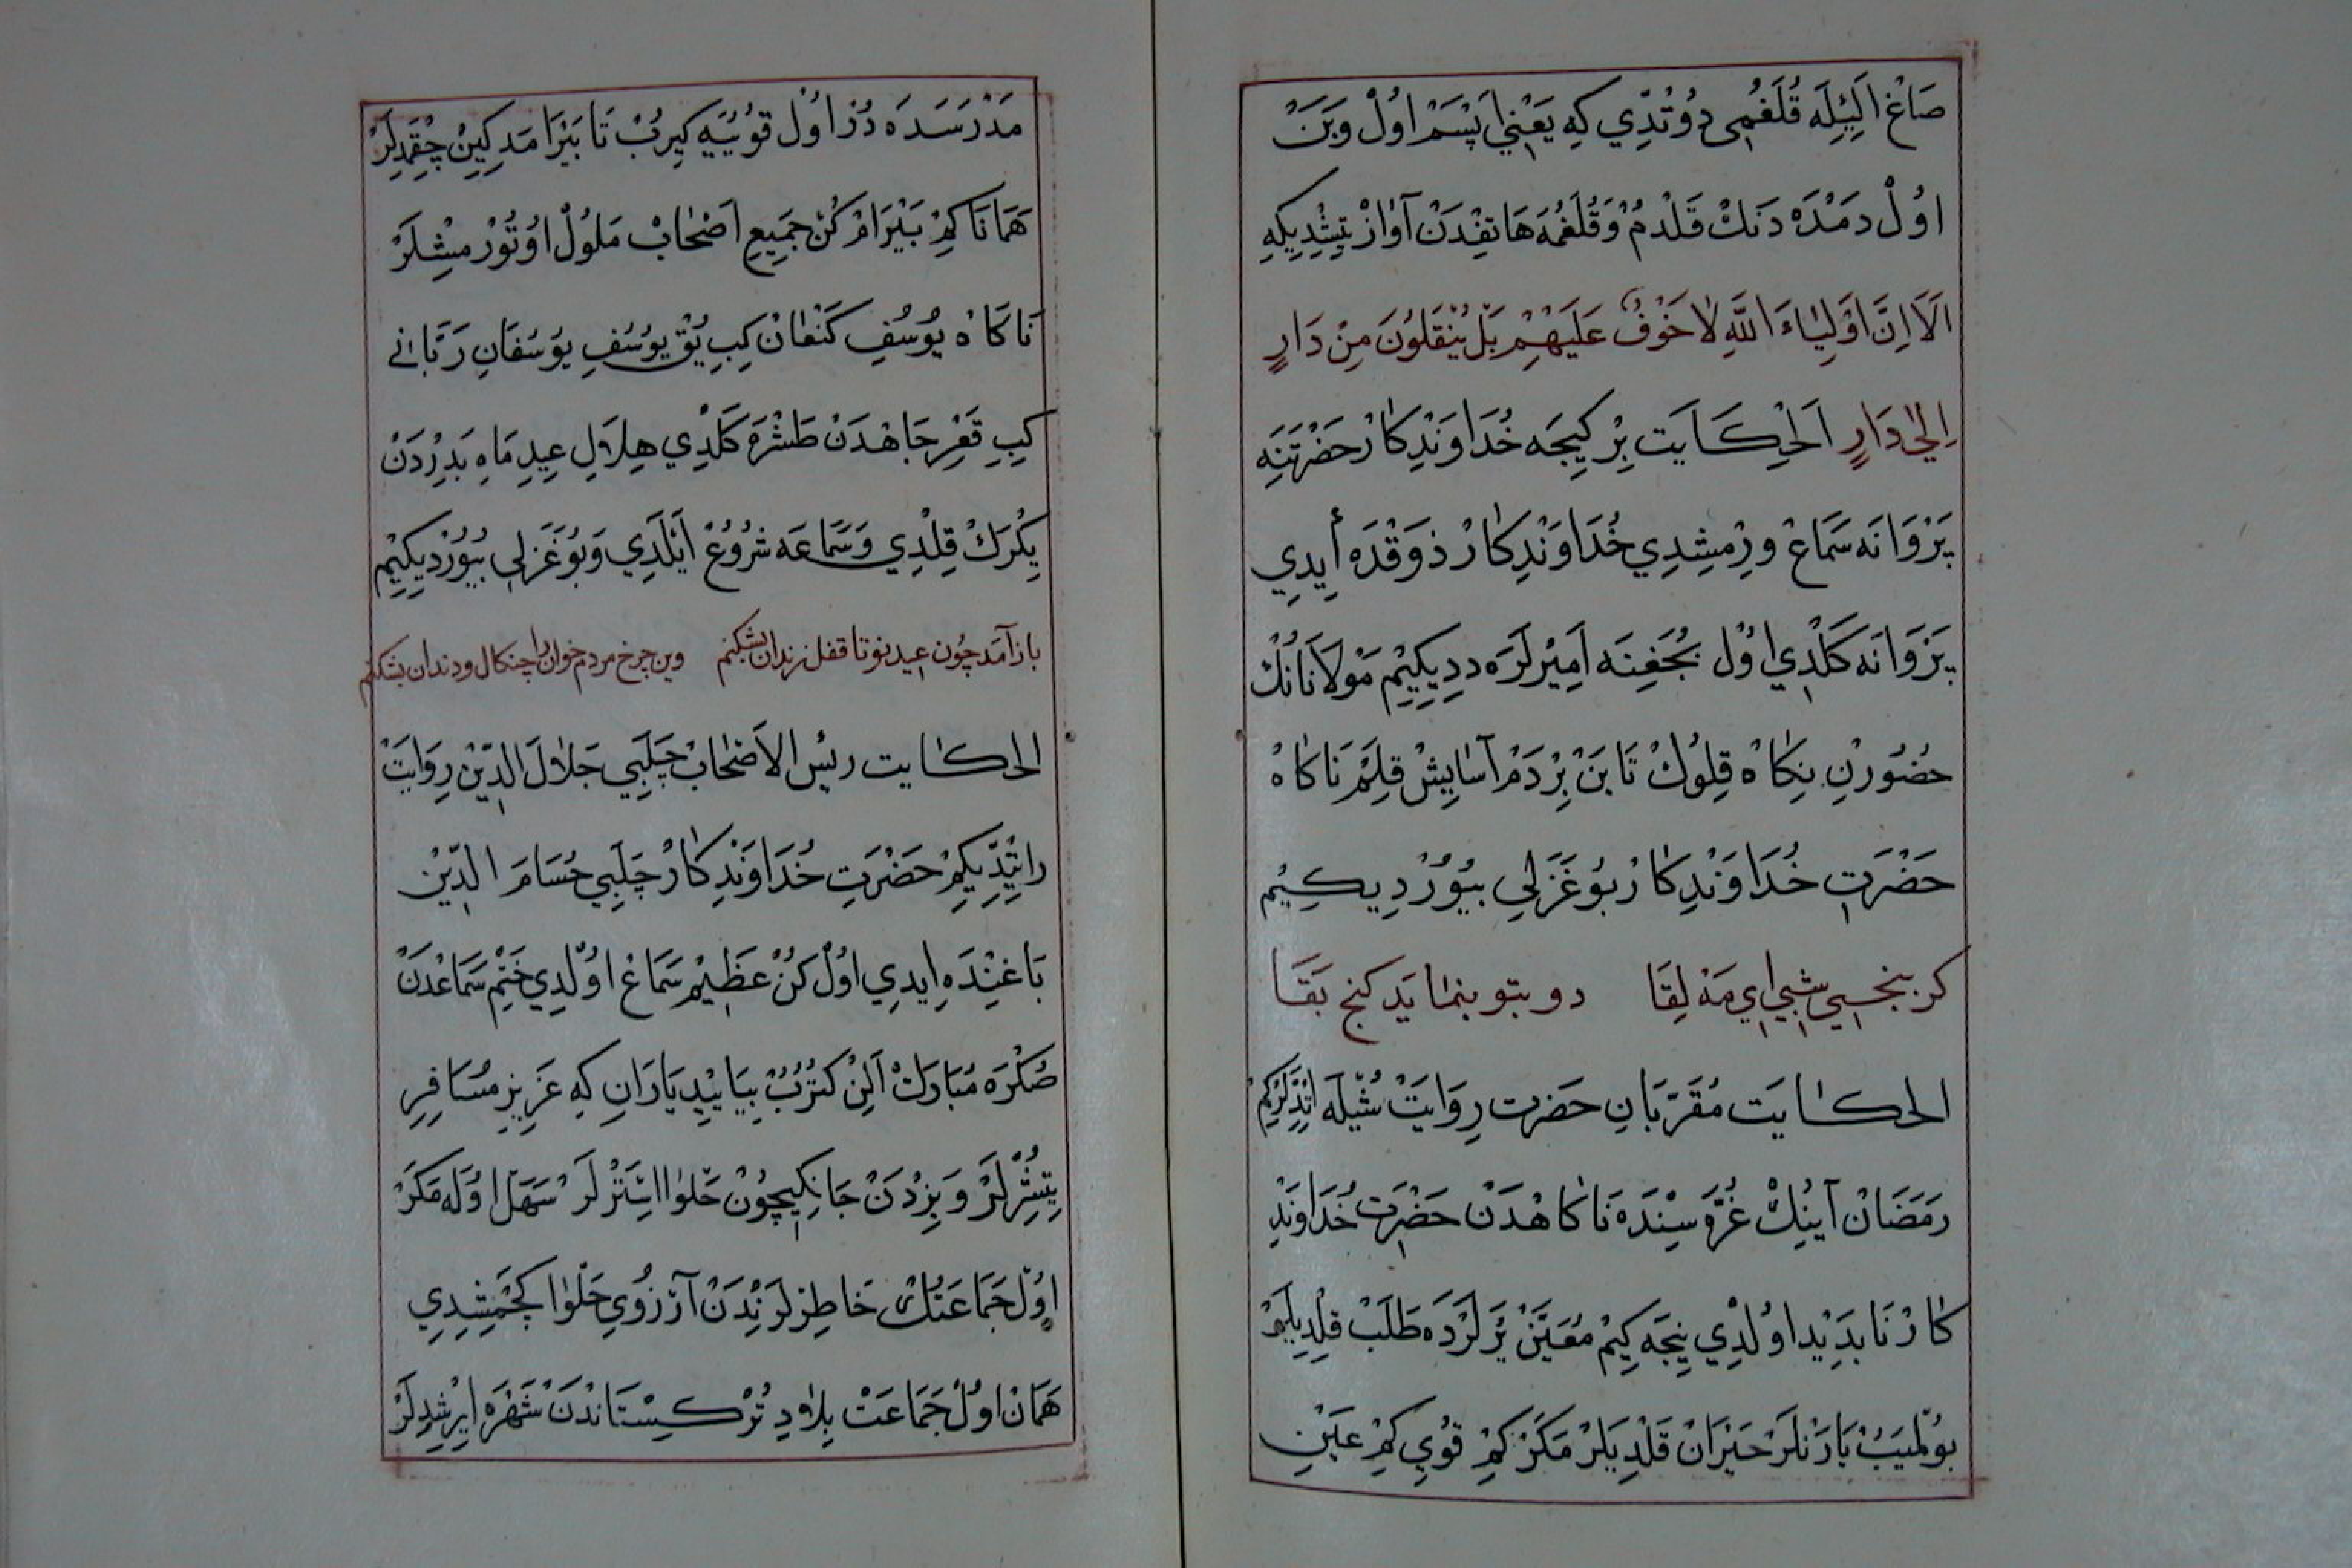 صَاغْ اَلِيْلَه قُلَغُمِى دُوتُدِّي كِه يَعْنِي اَپْسَمْ اوُلْ وَبَنْ
اوُلْ دَمْدَه دَنكْ قَلْدُمْ وَقُلَغُمَه هَاتِفْدَنْ آوَازْ يِتِشْدِيكِه
اَلَا اِنَّ اَوْلِيَاءَ اللّٰهِ لَا خَوْفٌ عَلَيْهِمْ بَلْ يُنْقَلُونَ مِنْ دَارٍ
اِلٰى دَارٍ اَلْحِكَايَت بِرْ كِيجَه خُدَاوَنْدِكَارْ حَضْرَتِنَه
پَرْوَانَه سَمَاعْ وِرْمِشِدِي خُدَاوَنْدِكَارْ ذَوْقْدَه اِيدِي
پَرْوَانَه كَلْدِي اوُلْ بُجَغِنَه اَمِيرْلَرَه دِدِيكِيْم مَوْلَانَانُكْ
حُضُورْنِ نِكَاهْ قِلُوكْ تَا بَنْ بِرْدَمْ آسَايِيشْ قِلَمْ نَاكَاهْ
حَضْرَتِ خُدَاوَنْدِكَارْ بُو غَزَلِي بُيُورْدِيكِيْم
كر بنخسپي شبي اي مَهْ لِقَا دو بتو بنمايد كنج بَقَا
الحكايَت مُقَرَّبَانِ حضرت رِوَايَتْ شُيْلَه اِتْدِّلَرْكِمْ
رَمَضَانْ آيِنُكْ غُرَّه سِنْدَه نَاكَاهْدَنْ حَضْرَتِ خُدَاوَنْدِ
كَارْ نَابَدِيد اوُلْدِي نِيجَه كِيمْ مُعَيَّنْ يَرْلَرْدَه طَلَبْ قِلْدِيلَرْ
بُولْمَيِبْ يَارَنْلَرْ حَيْرَانْ قَلْدِيلَرْ مَكَرْ كِمْ قُوْيِ كِمْ عَيْنِ
مَدْرَسَدَه دُرْ اوُلْ قُوْيُيَه كِيرِبْ تَا بَيْرَامَدَكِينْ چِقْمَدِلَرْ
هَمَانَا كِمْ بَيْرَامْ كُنْ جَمِيعِ اَصْحَابْ مَلُولْ اوُتُورْمِشْلَرْ
نَاكَاهْ يُوسُفِ كَنْعَانْ كِبِ يُقْ يُوسُفِ يُوسُفَانِ رَبَّانِي
كِبِ قَعْرِ چَاهْدَنْ طَشْرَه كَلْدِي هِلَالِ عِيدِ مَاهِ بَدِرْدَنْ
يِكْرَكْ قِلْدِي وَسَمَاعَه شُرُوعْ اَيْلَدِي وَبُو غَزَلِي بُيُورْدِيكِيْم
بازآمدم چون عيد نو تا قفل زندان بشكنم وين چرخ مردم خوار را چنكال ودندان بشكنم
الحكايت رئيس الاصحاب چَلَبِي جَلَالَ الدِّينْ رِوَايَتْ
اِتْدِيكِمْ حَضْرَتِ خُدَاوَنْدِكَارْ چَلَبِي حُسَامَ الدِّيْن
بَاغِنْدَه اِيدِي اوُلْ كُنْ عَظِيمْ سَمَاعْ اوُلْدِي خَتْمِ سَمَاعْدَنْ
صُكْرَه مُبَارَكْ اَلِنْ كُتُرُبْ بِيَايِيْدِ يَارَانِ كِه عَزِيزِ مُسَافِرِ
يِتِشْرْلَرْ وَبِزْدَنْ جَانِكِيچُونْ حَلْوَا اِسْتَرْلَرْ سَهَلْ اوُلَه مَكَرْ
اوُلْ جَمَاعَتُكْ خَاطِرْلَرِنْدَنْ آرْزُويِ حَلْوَا كَچْمِشِدِي
هَمَانْ اوُلْ جَمَاعَتْ بِلَادِ تُرْكِسْتَانْدَنْ شَهْرَه اِيرِشْدِلَرْ